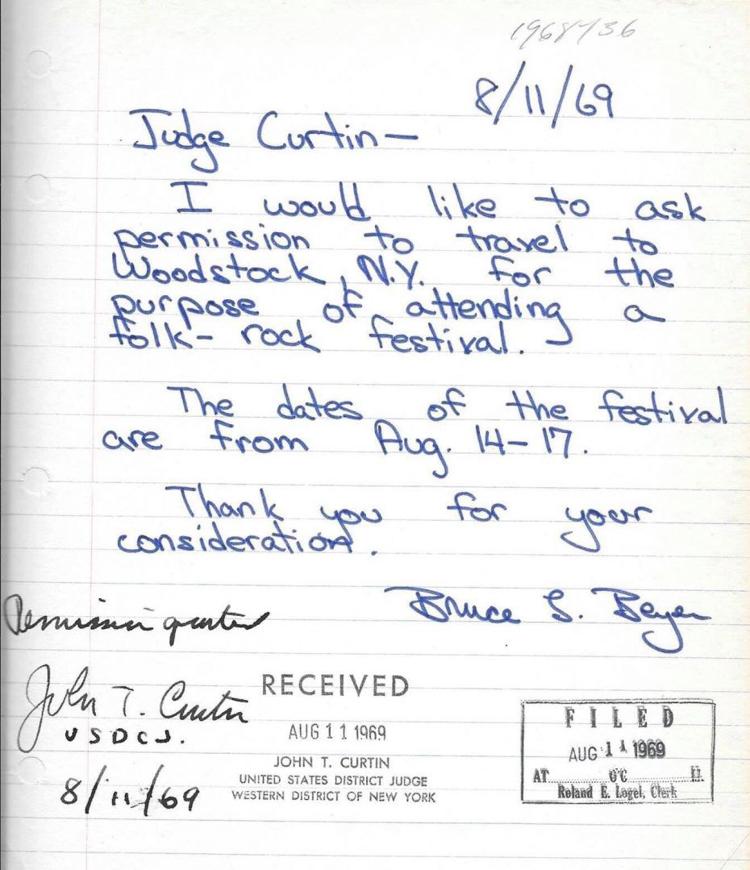 1968-136
8/11/69
Judge Curtin—
I would like to ask
permission to travel to
Woodstock, N.Y. for the
purpose of attending a
folk-rock festival.
The dates of the festival
are from Aug. 14-17.
Thank you for your
consideration.
Bruce S. Beyer
Permission granted
John T. Curtin
USDCJ.
8/11/69
RECEIVED
AUG 11 1969
JOHN T. CURTIN
UNITED STATES DISTRICT JUDGE
WESTERN DISTRICT OF NEW YORK
FILED
AUG 11 1969
AT O'C M.
Roland E. Logel, Clerk